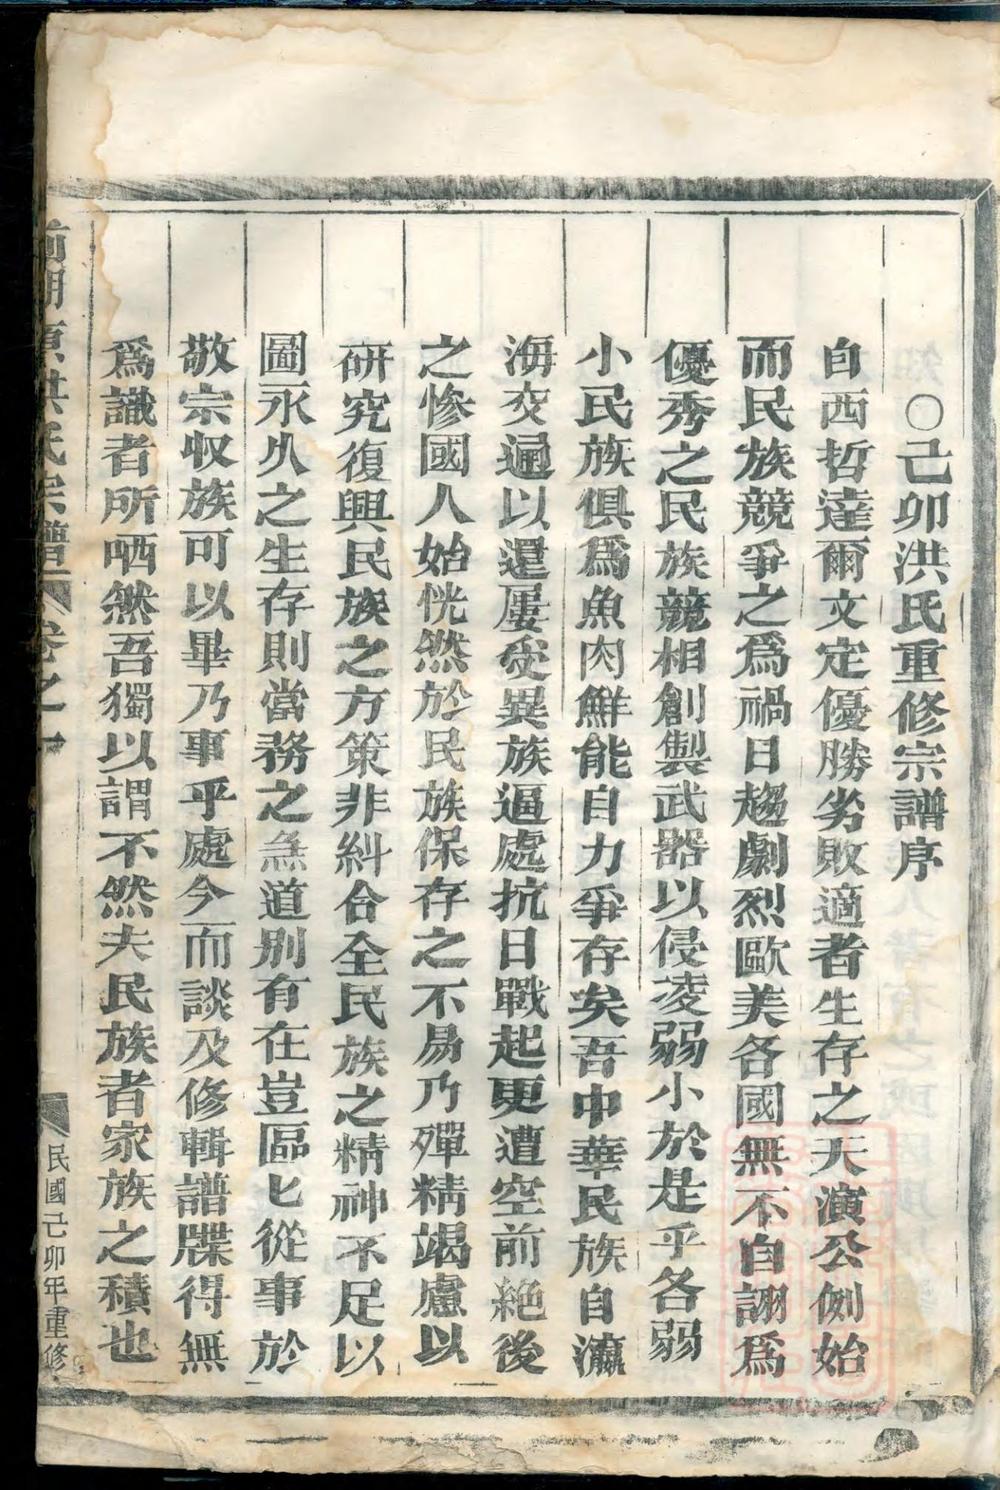 〇己卯洪氏重修宗譜序
自西哲達爾文定優勝劣敗適者生存之天演公例始
而民族競爭之爲禍日趨劇烈歐美各國無不自詡爲
優秀之民族競相創製武器以侵凌弱小於是乎各弱
小民族俱爲魚肉鮮能自力爭存矣吾中華民族自瀛
海交通以還屢受異族逼處抗日戰起更遭空前絶後
之慘國人始恍然於民族保存之不易乃殫精竭慮以
研究復興民族之方策非糾合全民族之精神不足以
圖永久之生存則當務之無道別有在豈區匕從事於
敬宗收族可以畢乃事乎處今而談及修輯譜牒得無
爲識者所哂然吾獨以謂不然夫民族者家族之積也
洪氏宗譜 卷之一 民國己卯年重修